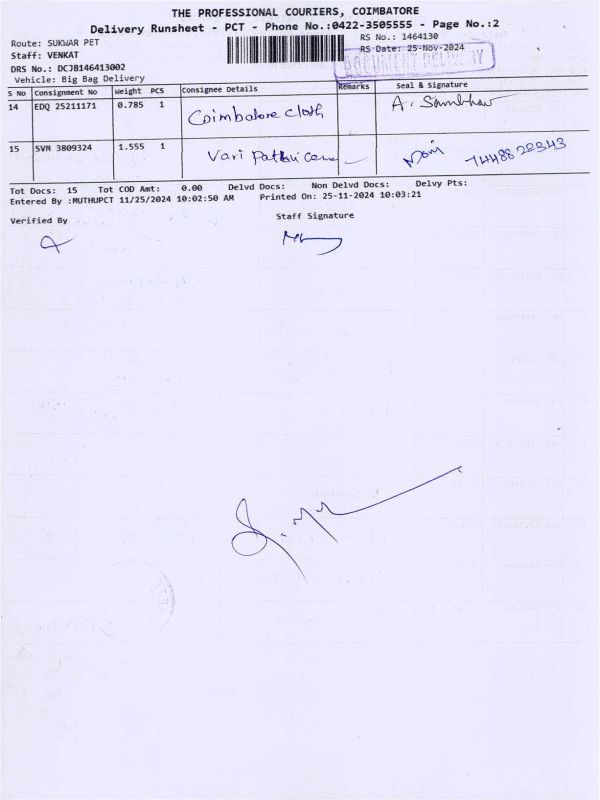 THE PROFESSIONAL COURIERS, COIMBATORE
Delivery Runsheet - PCT - Phone No.:0422-3505555 - Page No.:2
Route: SUKWAR PET
RS No.: 1464130
Staff: VENKAT
RS Date: 25-Nov-2024
DOCUMENT DELIVERY
DRS No.: DCJB146413002
Vehicle: Big Bag Delivery
S No Consignment No Weight PCS Consignee Details Remarks Seal & Signature
14 EDQ 25211171 0.785 1 Coimbatore Cloth A. Sambhav
15 SVM 3809324 1.555 1 Vari Mani
Tot Docs: 15 Tot COD Amt: 0.00 Delvd Docs: Non Delvd Docs: Delvy Pts:
Entered By :MUTHUPCT 11/25/2024 10:02:50 AM Printed On: 25-11-2024 10:03:21
Verified By
Staff Signature